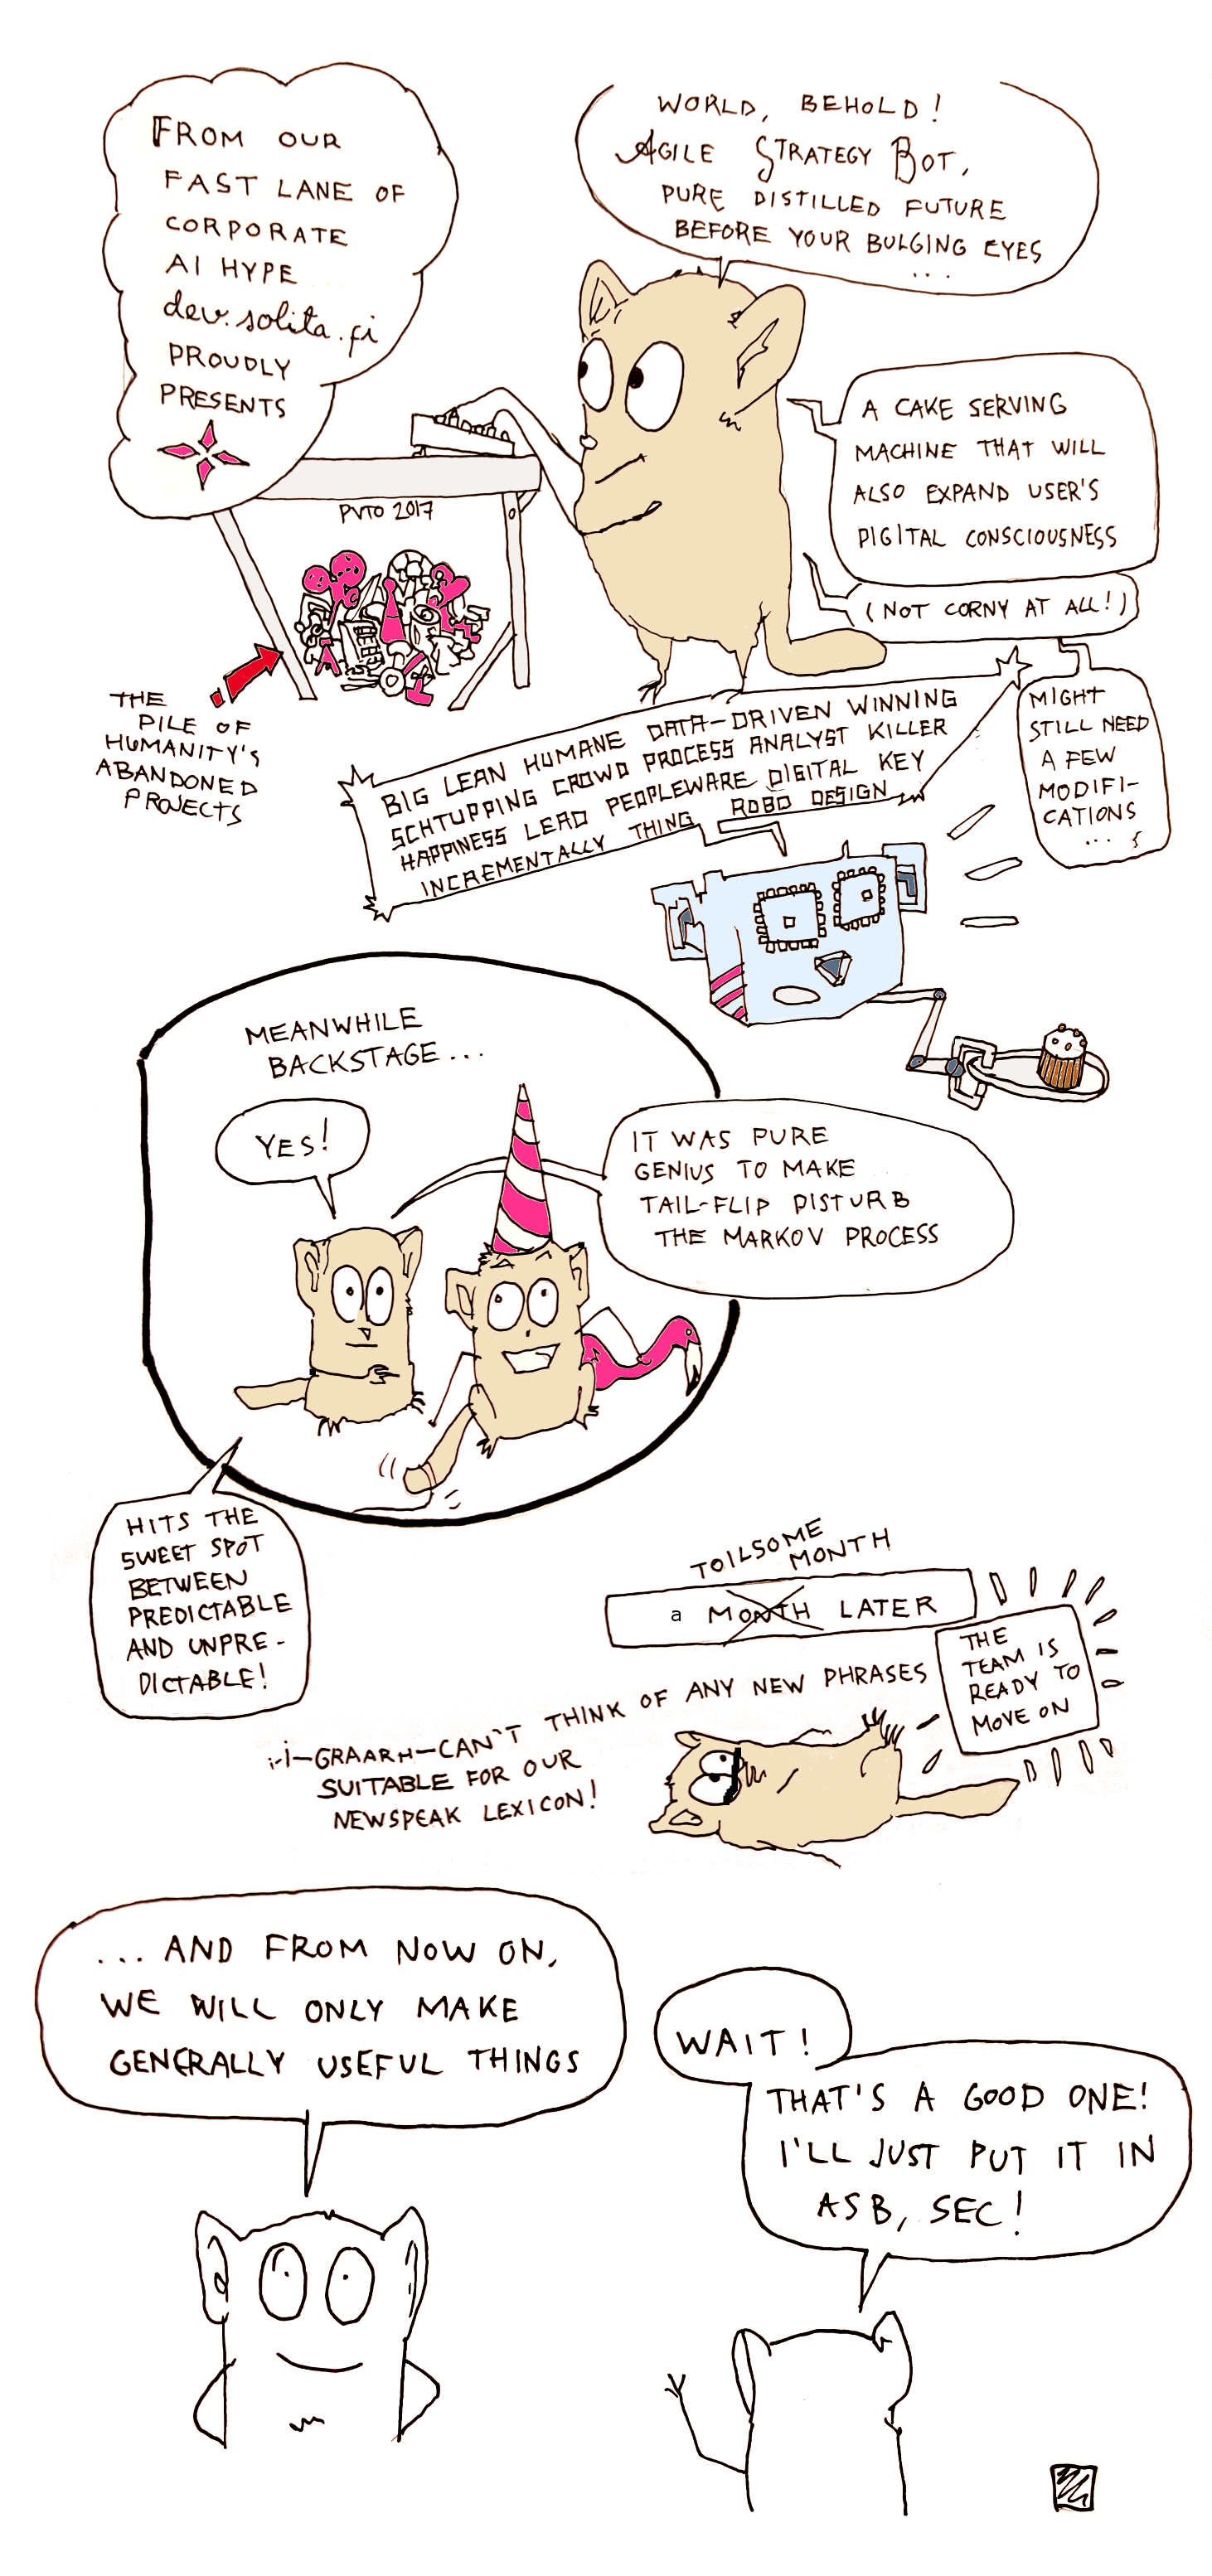 FROM OUR
FAST LANE OF
CORPORATE
AI HYPE
dev.solita.fi
PROUDLY
PRESENTS
WORLD, BEHOLD!
AGILE STRATEGY BOT,
PURE DISTILLED FUTURE
BEFORE YOUR BULGING EYES
...
A CAKE SERVING
MACHINE THAT WILL
ALSO EXPAND USER'S
DIGITAL CONSCIOUSNESS
(NOT CORNY AT ALL!)
MIGHT
STILL NEED
A FEW
MODIFI-
CATIONS
...
PVTO 2017
THE
PILE OF
HUMANITY'S
ABANDONED
PROJECTS
BIG LEAN HUMANE DATA-DRIVEN WINNING
SCHTUPPING CROWD PROCESS ANALYST KILLER
HAPPINESS LEAD PEOPLEWARE DIGITAL KEY
INCREMENTALLY THING ROBO DESIGN
MEANWHILE
BACKSTAGE...
YES!
IT WAS PURE
GENIUS TO MAKE
TAIL-FLIP DISTURB
THE MARKOV PROCESS
HITS THE
SWEET SPOT
BETWEEN
PREDICTABLE
AND UNPRE-
DICTABLE!
TOILSOME
MONTH
a MONTH LATER
THE
TEAM IS
READY TO
MOVE ON
i-i-GRAARH-CAN'T THINK OF ANY NEW PHRASES
SUITABLE FOR OUR
NEWSPEAK LEXICON!
... AND FROM NOW ON,
WE WILL ONLY MAKE
GENERALLY USEFUL THINGS
WAIT!
THAT'S A GOOD ONE!
I'LL JUST PUT IT IN
ASB, SEC!